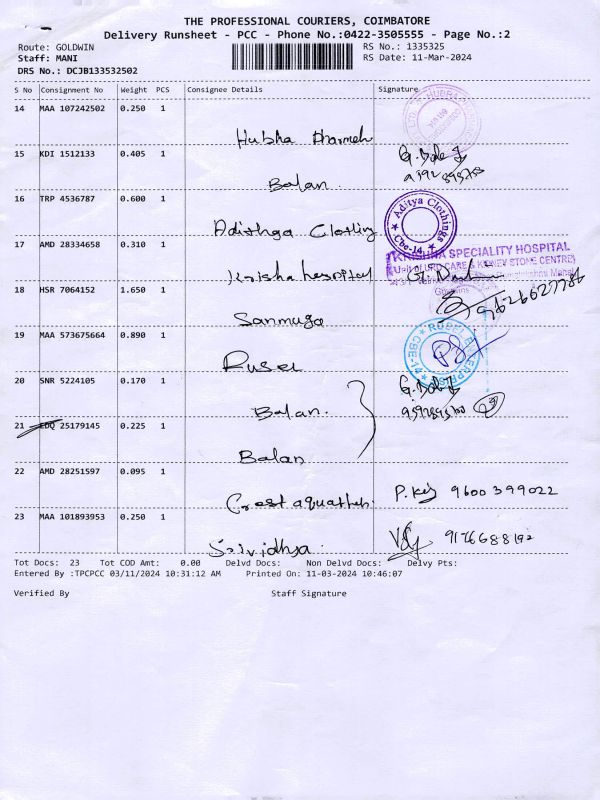 THE PROFESSIONAL COURIERS, COIMBATORE
Delivery Runsheet - PCC - Phone No.:0422-3505555 - Page No.:2
Route: GOLDWIN
RS No.: 1335325
Staff: MANI
RS Date: 11-Mar-2024
DRS No.: DCJB133532502
S No Consignment No Weight PCS Consignee Details Signature
14 MAA 107242502 0.250 1
Hubsha
15 KDI 1512133 0.405 1
Balan
16 TRP 4536787 0.600 1
Aditya Clothings
Cbe-14
17 AMD 28334658 0.310 1
hospital
KRISHNA SPECIALITY HOSPITAL
18 HSR 7064152 1.650 1
Sanmuga
19 MAA 573675664 0.890 1
CBE-14
20 SNR 5224105 0.170 1
Balan
21 EDQ 25179145 0.225 1
Balan
22 AMD 28251597 0.095 1
Crest P.Kej 9600399022
23 MAA 101893953 0.250 1
Srividhya
Tot Docs: 23 Tot COD Amt: 0.00 Delvd Docs: Non Delvd Docs: Delvy Pts:
Entered By :TPCPCC 03/11/2024 10:31:12 AM Printed On: 11-03-2024 10:46:07
Verified By Staff Signature